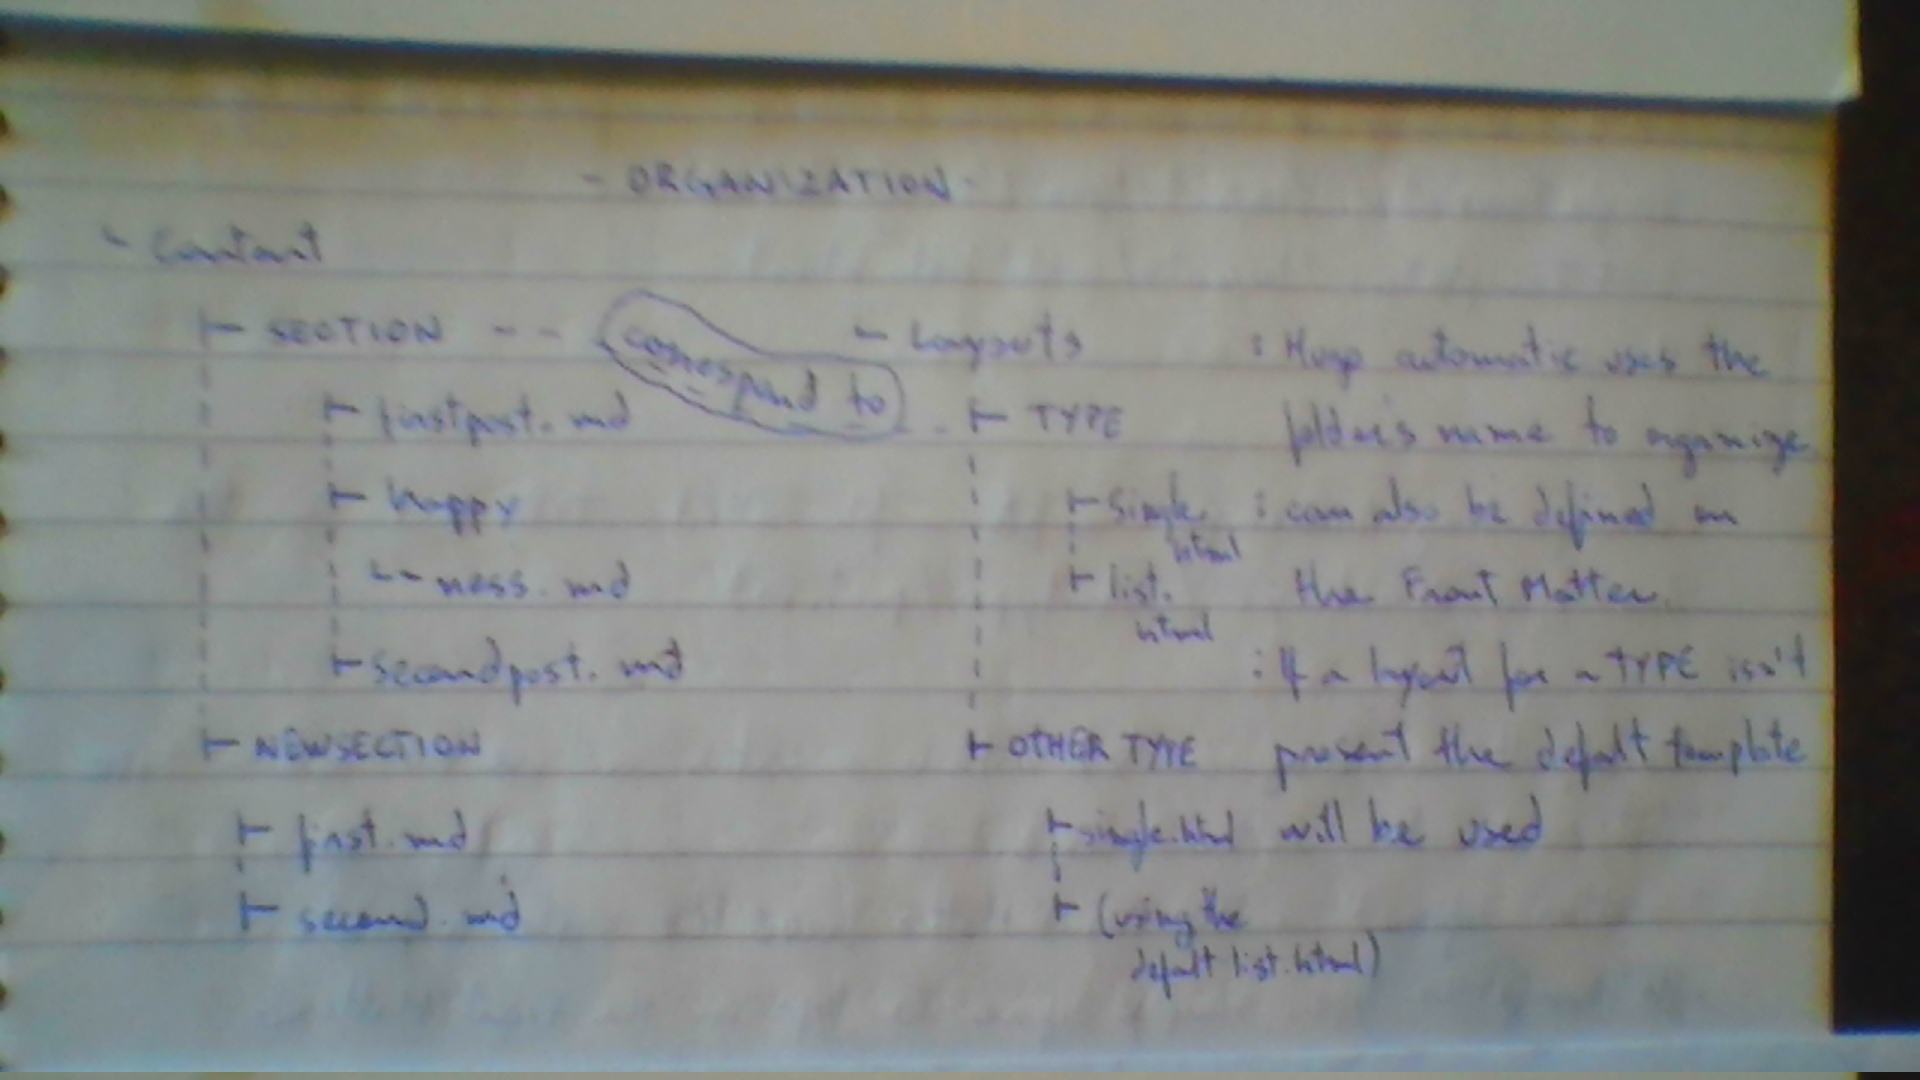 - ORGANIZATION -
Content
SECTION -- correspond to
firstpost.md
happy
ness.md
secondpost.md
NEWSECTION
first.md
second.md
Layouts
TYPE
single.
html
list.
html
OTHER TYPE
single.html
(using the
defalt list.html)
: Hugo automatic uses the
folder's name to organize
: can also be defined in
the Front Matter.
: If a layout for a TYPE isn't
present the defalt template
will be used